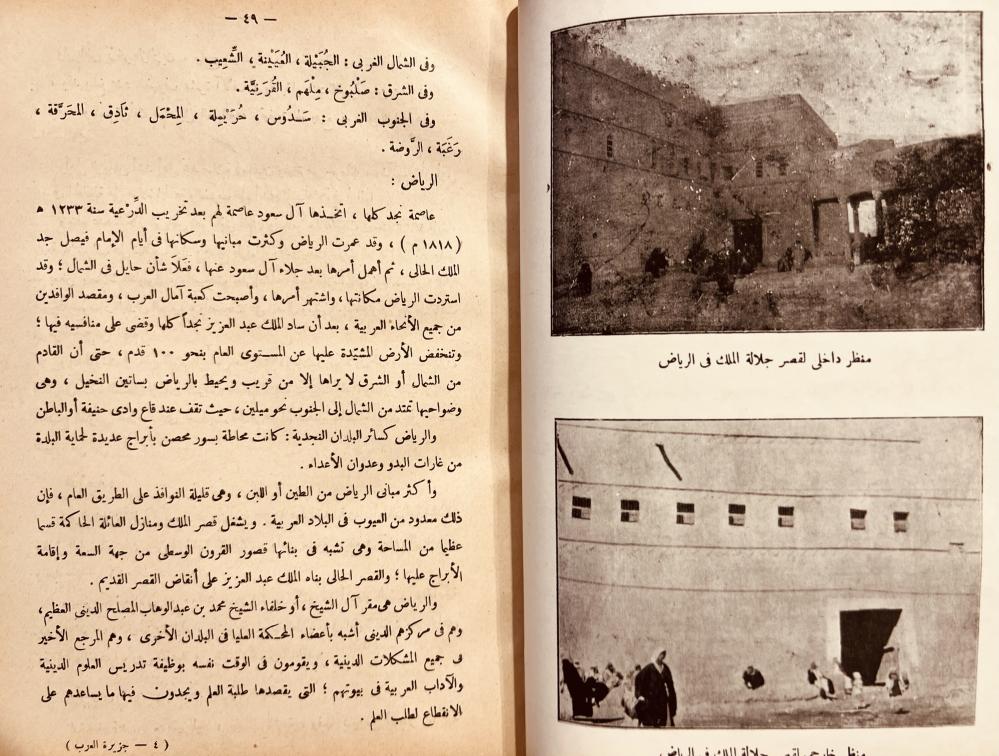 — ٤٩ —
وفى الشمال الغربى : الجُبَيْلة ، العُيَيْنة ، الشَّعِيب .
وفى الشرق : صَلْبُوخ ، مِلْهَم ، القُرَينِيَّة .
وفى الجنوب الغربى : سَدُوس ، حُرَيْمِلة ، المِحْمَل ، ثادِق ، المحَرَّقة ،
رَغَبَة ، الرَّوضة .
الرياض :
عاصمة نجد كلها ، اتخذها آل سعود عاصمة لهم بعد تخريب الدِّرْعية سنة ١٢٣٣ ه
( ١٨١٨ م ) ، وقد عمرت الرياض وكثرت مبانيها وسكانها فى أيام الإمام فيصل جد
الملك الحالى ، ثم أهمل أمرها بعد جلاء آل سعود عنها ، فعَلاَ شأن حايل فى الشمال ؛ وقد
استردت الرياض مكانتها ، واشتهر أمرها ، وأصبحت كعبة آمال العرب ، ومقصد الوافدين
من جميع الأنحاء العربية ، بعد أن ساد الملك عبد العزيز نجداً كلها وقضى على منافسيه فيها ؛
وتنخفض الأرض المشيّدة عليها عن المستوى العام بنحو ١٠٠ قدم ، حتى أن القادم
من الشمال أو الشرق لا يراها إلا من قريب ويحيط بالرياض بساتين النخيل ، وهى
وضواحيها تمتد من الشمال إلى الجنوب نحو ميلين ، حيث تقف عند قاع وادى حنيفة أو الباطن
والرياض كسائر البلدان النجدية : كانت محاطة بسور محصن بأبراج عديدة لحماية البلدة
من غارات البدو وعدوان الأعداء .
وأكثر مبانى الرياض من الطين أو اللبن ، وهى قليلة النوافذ على الطريق العام ، فإن
ذلك معدود من العيوب فى البلاد العربية . ويشغل قصر الملك ومنازل العائلة الحاكمة قسما
عظيما من المساحة وهى تشبه فى بنائها قصور القرون الوسطى من جهة السعة وإقامة
الأبراج عليها ؛ والقصر الحالى بناه الملك عبد العزيز على أنقاض القصر القديم .
والرياض هى مقر آل الشيخ ، أو خلفاء الشيخ محمد بن عبد الوهاب المصلح الدينى العظيم ،
وهم فى مركزهم الدينى أشبه بأعضاء المحكمة العليا فى البلدان الأخرى ، وهم المرجع الأخير
فى جميع المشكلات الدينية ، ويقومون فى الوقت نفسه بوظيفة تدريس العلوم الدينية
والآداب العربية فى بيوتهم ؛ التى يقصدها طلبة العلم ويجدون فيها ما يساعدهم على
الانقطاع لطلب العلم .
( ٤ — جزيرة العرب )
منظر داخلى لقصر جلالة الملك فى الرياض
منظر خارجى لقصر جلالة الملك فى الرياض